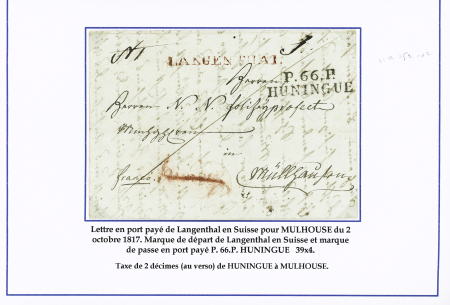 LANGENTHAL
P. 66. P.
HUNINGUE
Herren
Herren N. N.
in
Müllhausen
franco
Lettre en port payé de Langenthal en Suisse pour MULHOUSE du 2
octobre 1817. Marque de départ de Langenthal en Suisse et marque
de passe en port payé P. 66.P. HUNINGUE 39x4.
Taxe de 2 décimes (au verso) de HUNINGUE à MULHOUSE.